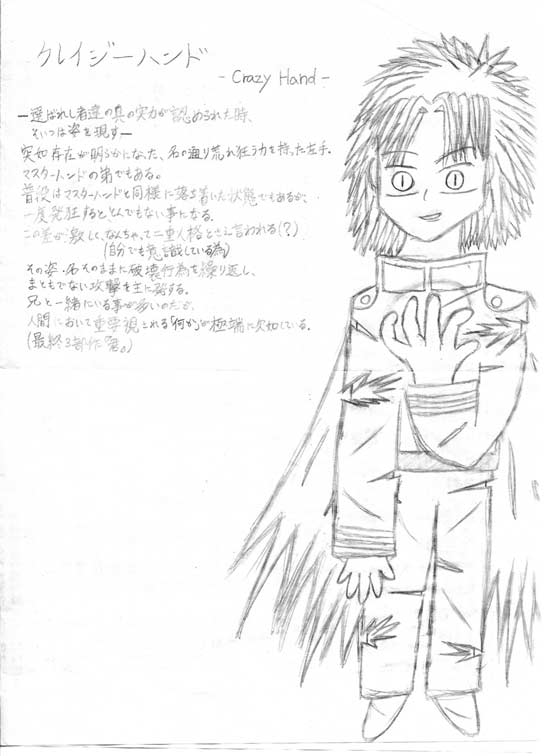 クレイジーハンド
- Crazy Hand -
―選ばれし者達の真の実力が認められた時、
そいつは姿を現す―
突如存在が明らかになった、名の通り荒れ狂う力を持った左手。
マスターハンドの弟でもある。
普段はマスターハンドと同様に落ち着いた状態でもあるが、
一度発狂するととんでもない事になる。
この差が激しく、なんちゃって二重人格とさえ言われる(?)
(自分でも意識している為)
その姿・名そのままに破壊行為を繰り返し、
まともでない攻撃を主に発する。
兄と一緒にいる事が多いのだが、
人間において重要視される「何か」が極端に欠如している。
(最終3部作「君。)